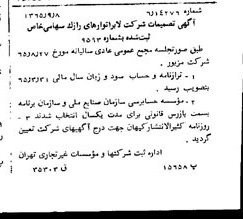 شماره ۶/۱۴۲۷۶ ۱۳۶۵/۹/۸
آگهی تصمیمات شرکت لابراتوارهای رازک سهامی‌خاص
ثبت‌شده بشماره ۹۵۶۳
طبق صورتجلسه مجمع عمومی عادی سالیانه مورخ ۶۵/۸/۲۷
شرکت مزبور.
۱ - ترازنامه و حساب سود و زیان سال مالی ۶۵/۳/۳۱
بتصویب رسید.
۲ - مؤسسه حسابرسی سازمان صنایع ملی و سازمان برنامه
بسمت بازرس قانونی برای مدت یکسال انتخاب شدند ۳ -
روزنامه کثیرالانتشار کیهان جهت درج آگهی‌های شرکت تعیین
گردید.
اداره ثبت شرکتها و مؤسسات غیرتجاری تهران
پ ۱۵۶۵۸ ق ۳۵۳۰۳